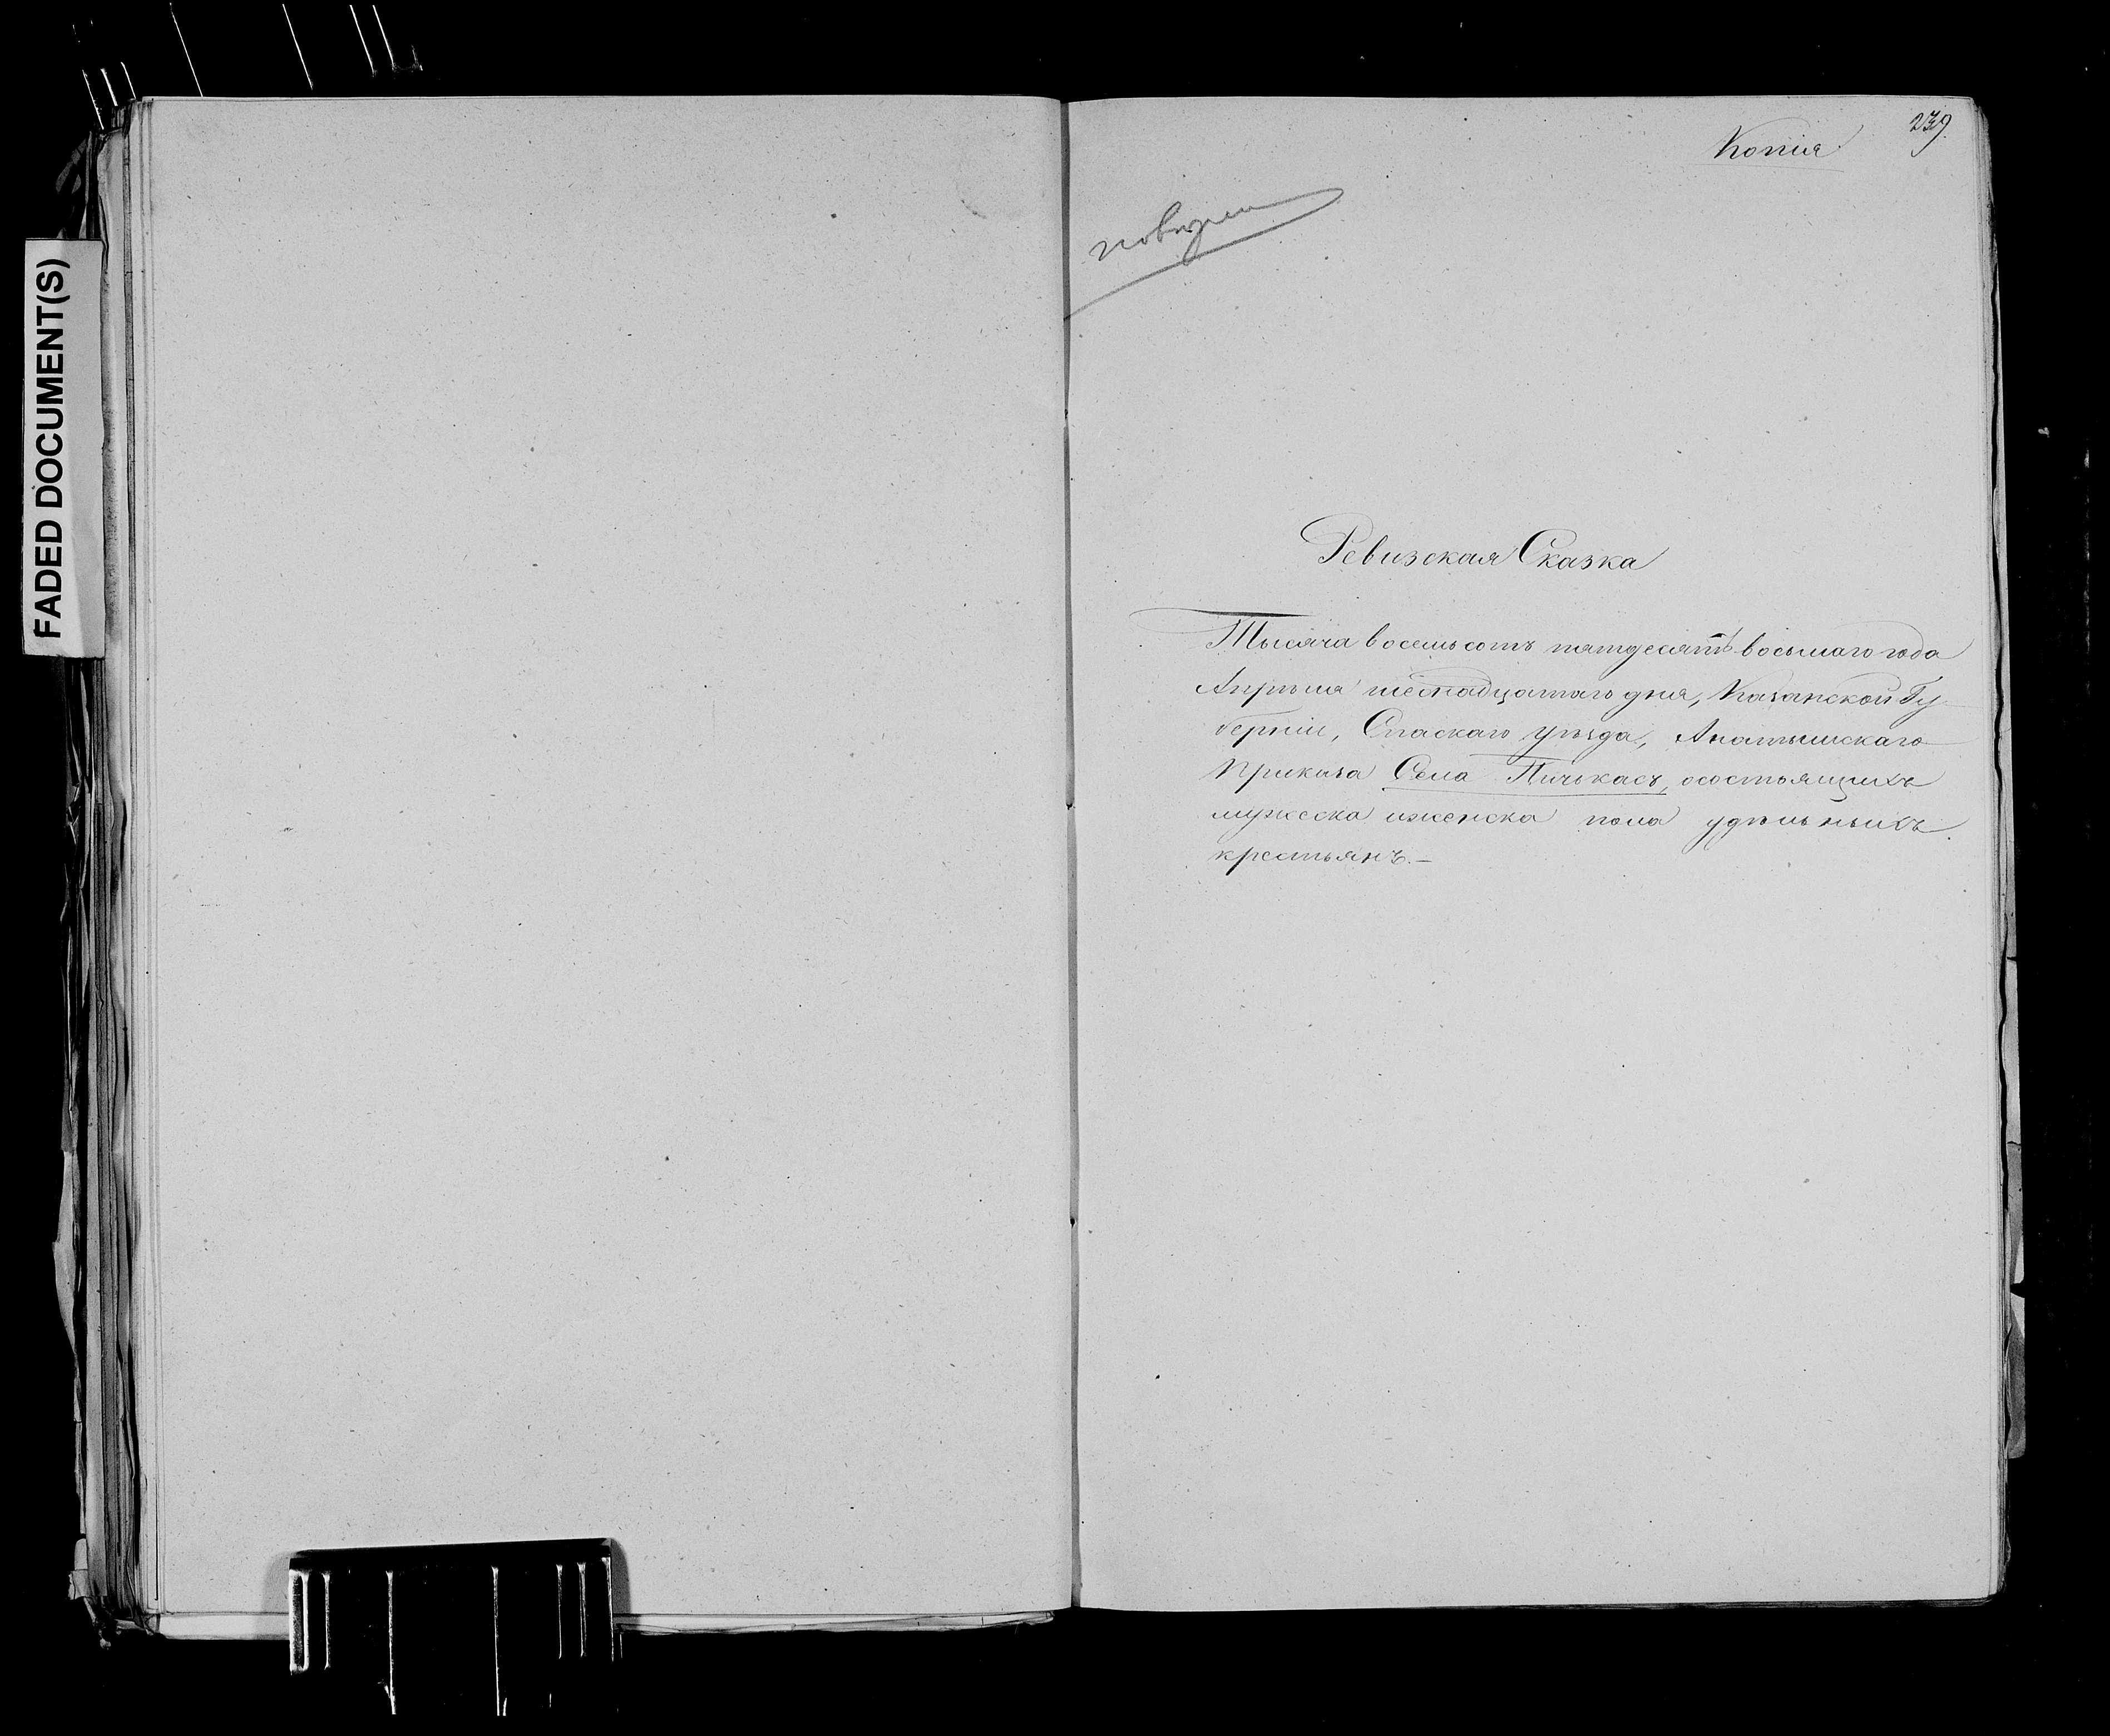 FADED DOCUMENT(S)
239
Копія
Ревизская Сказка
Тысяча восемьсотъ пятдесятъ восьмаго года
Апрѣля шеснадцатаго дня, Казанской Гу-
берніи, Спаскаго уѣзда,
Приказа Села Пичкасъ, осостоящихъ
мужеска иженска пола удѣльныхъ
крестьянъ.-